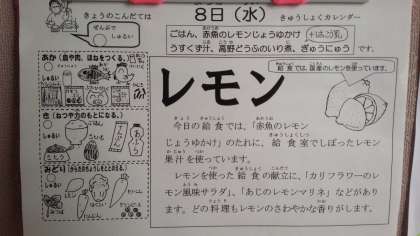 きょうのこんだては
ぜんぶで
しゅるい
8日(水)
きゅうしょくカレンダー
ごはん、赤魚のレモンじょうゆかけ
うすくず汁、高野どうふのいり煮、ぎゅうにゅう です。
あか(血や肉、ほねをつくる。)
しゅるい
き(ねつや力のもとになる。)
しゅるい
みどり(からだのちょうしをととのえる。)
しゅるい
給食では、国産のレモンを使っています。
レモン
今日の給食では、「赤魚のレモン
じょうゆかけ」のたれに、給食室でしぼったレモン
果汁を使っています。
レモンを使った給食の献立に、「カリフラワーのレ
モン風味サラダ」、「あじのレモンマリネ」などがあり
ます。どの料理もレモンのさわやかな香りがします。